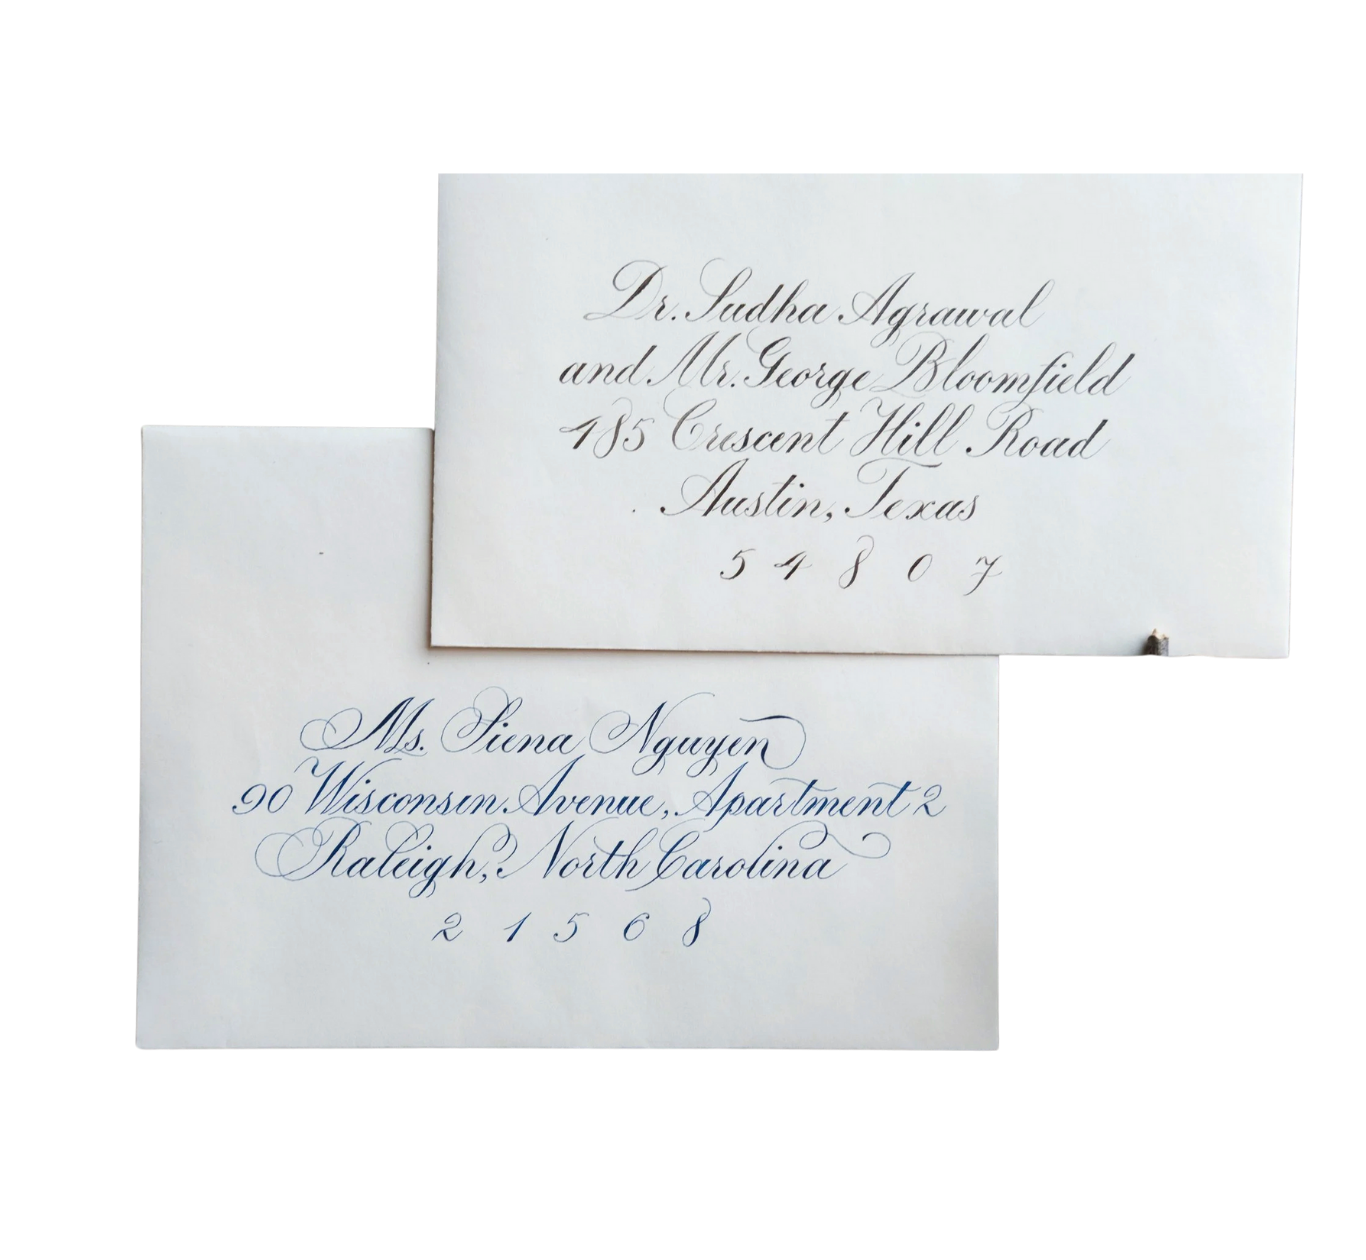 Dr. Sudha Agrawal
and Mr. George Bloomfield
485 Crescent Hill Road
Austin, Texas
54807
Ms. Siena Nguyen
90 Wisconsin Avenue, Apartment 2
Raleigh, North Carolina
21568